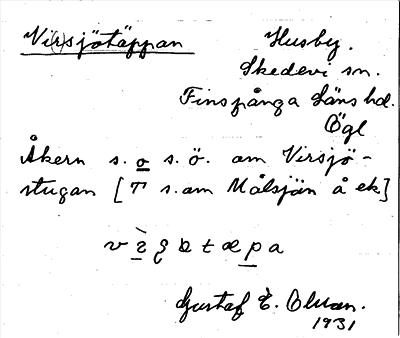 Vi(r)sjötäppan
Husby.
Skedevi sn.
Finspånga läns hd.
Ögl
Åkern s. o s.ö. om Virsjö-
stugan [T s.om Målsjön å ek]
Gustaf E. Olsson.
1931